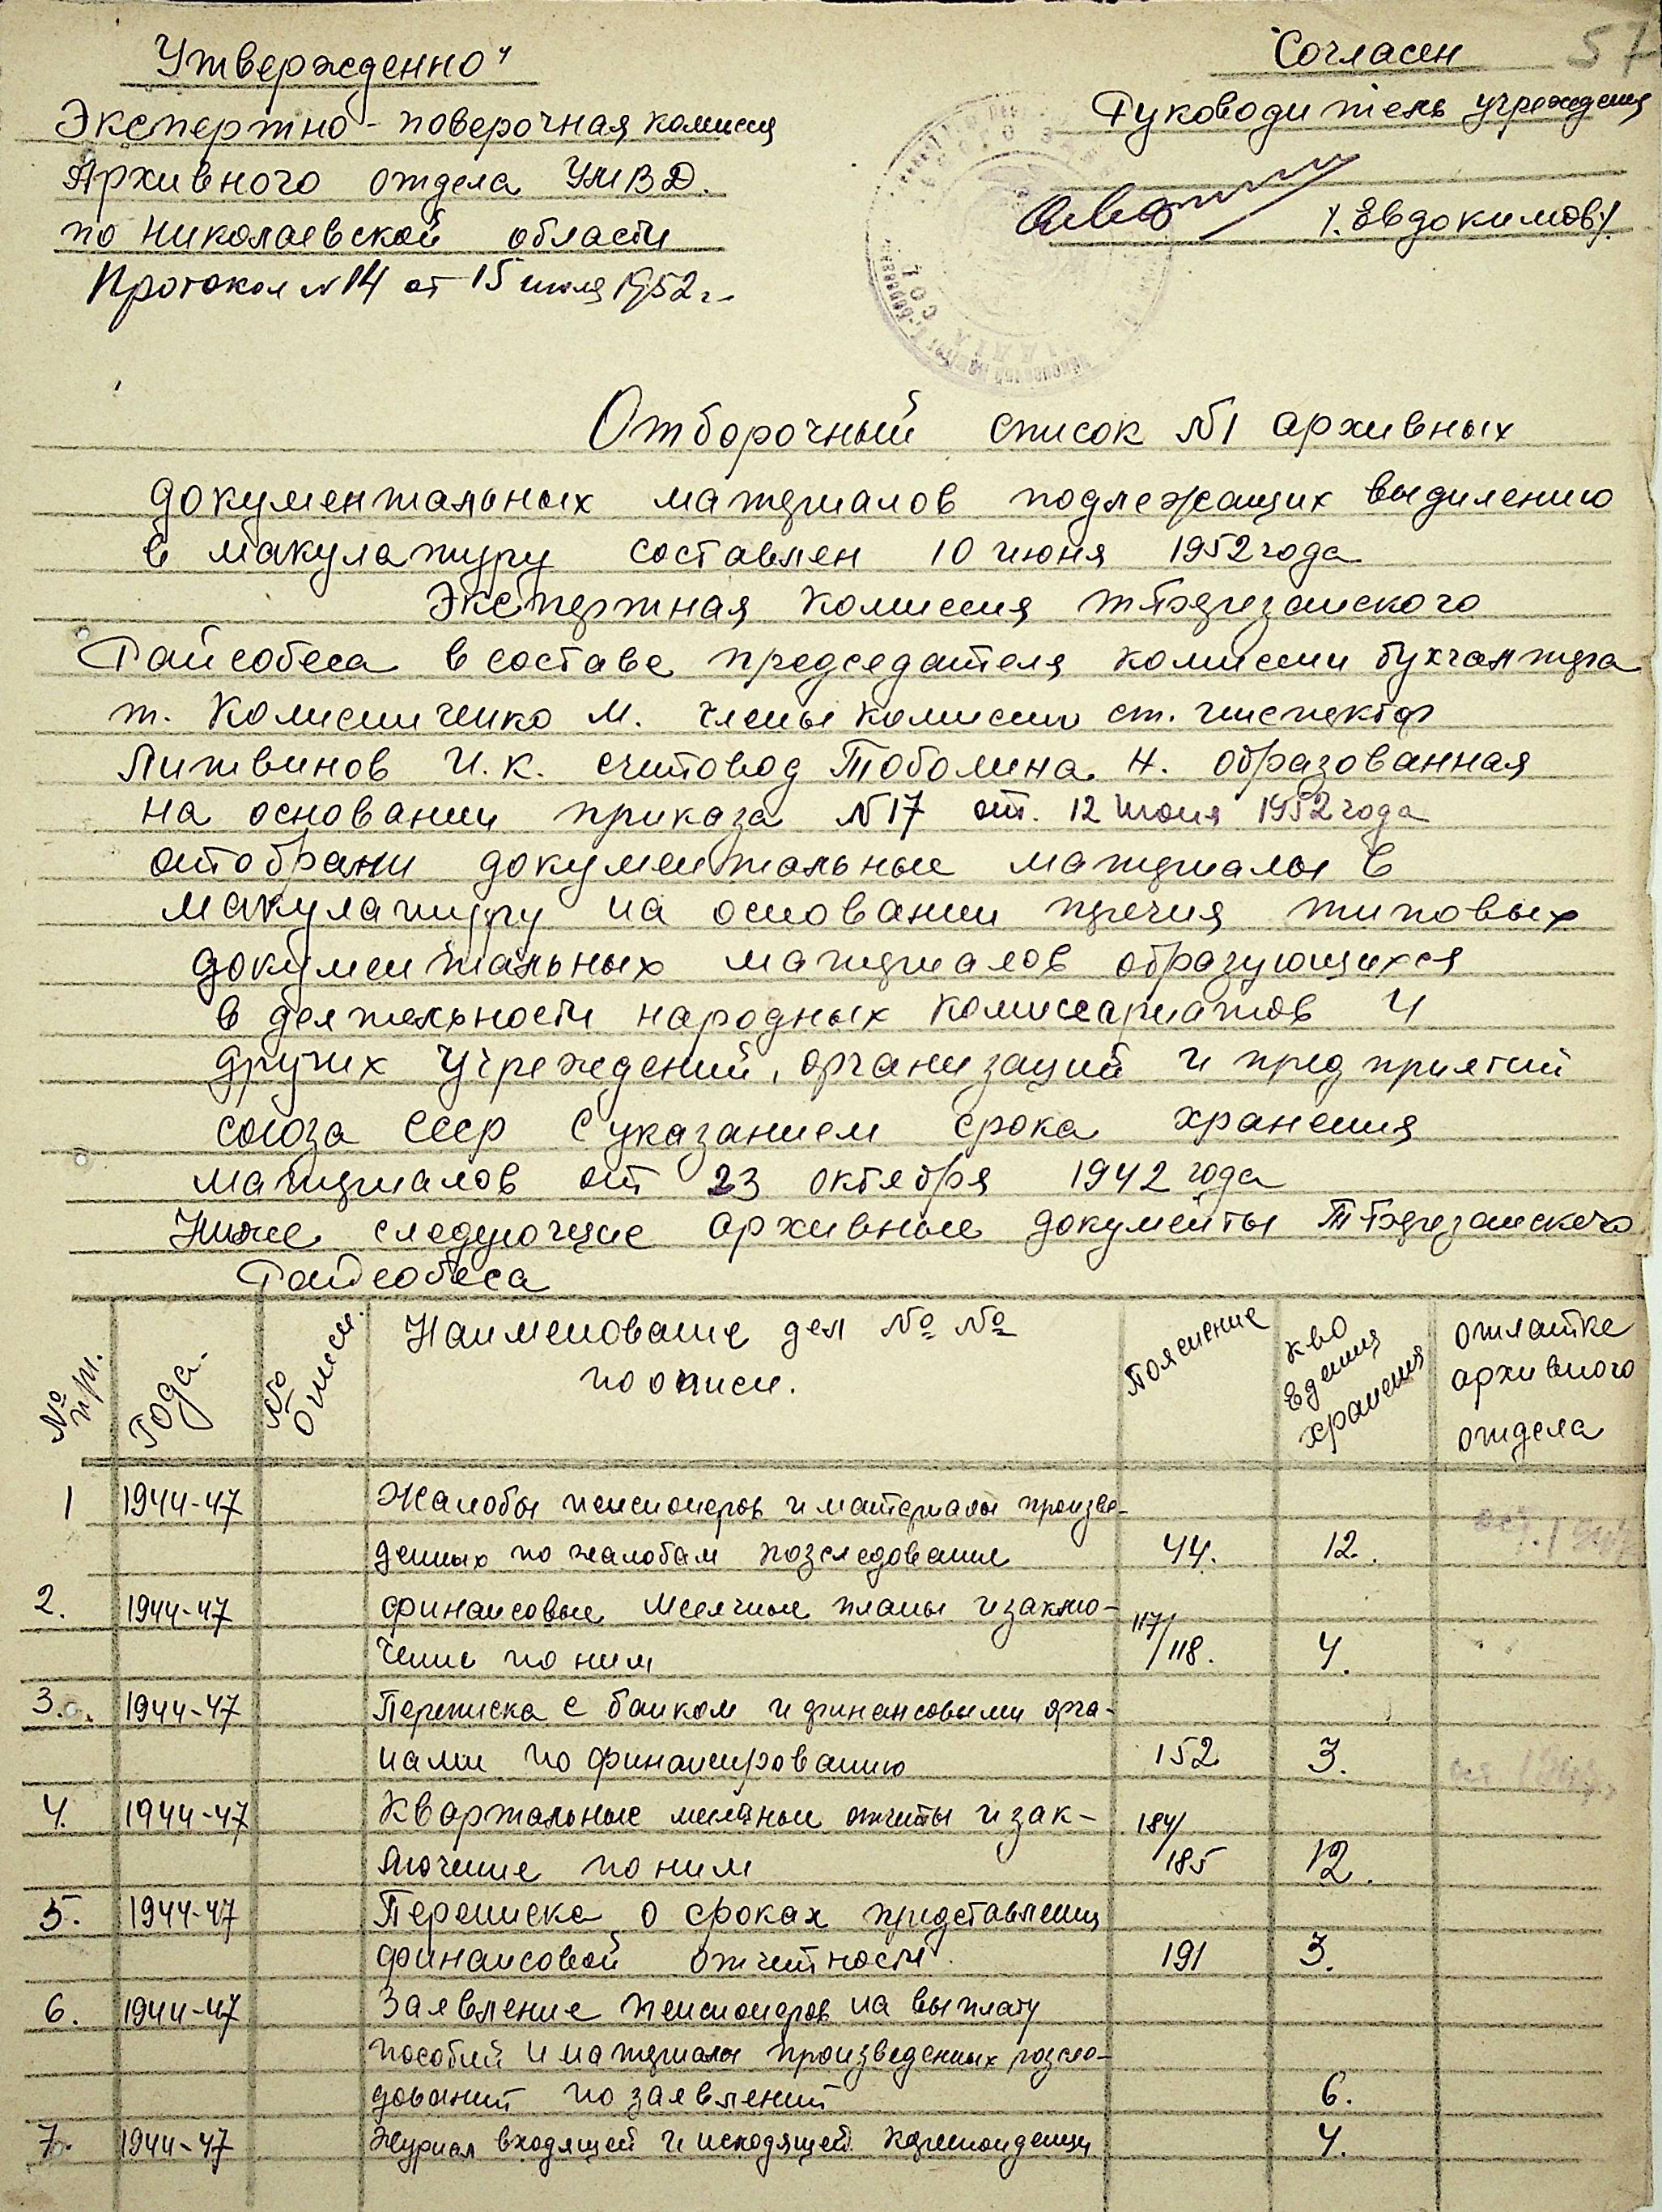 "Утвержденно"
Экспертно-поверочная комиссия
Архивного отдела УМВД.
по Николаевской области
Протокол №14 от 15 июля 1952 г.
Согласен
57
Руководитель учреждения
/.Евдокимов/.
Отборочный список №1 архивных
документальных материалов подлежащих выделению
в макулатуру составлен 10 июня 1952 года
Экспертная комиссия Тб̶езанского
Райсобеса в составе председателя комиссии бухгалтера
т. Комисниченко М. члены комиссии ст. инспектор
Литвинов И.К. счетовод Тоболина Н. образованная
на основании приказа №17 от. 12 июня 1952 года
отобрани документальные материалы в
макулатуру на основании пречня типовых
документальных материалов образующихся
в деятельности народных комиссариатов и
других учреждений, организаций и предприятий
союза ССР с указанием срока хранения
материалов от 23 октября 1942 года
Ниже следующие архивные документы
Райсобеса
№ п/п.
Года.
№ описи.
Наименование дел №№
по описи.
Пояснение
К-во едениц хранения
отметке
архивного
отдела
1 1944-47 Жалобы пенсионеров и материалы произве-
денных по жалобам розследование 44. 12.
2. 1944-47 финансовые месячные планы и заклю-
чение по ним 117/118. 4.
3. 1944-47 Переписка с банком и финансовыми орга-
нами по финансированию 152 3.
4. 1944-47 Квартальные месячные отчеты и зак-
лючение по ним 184/185 12.
5. 1944-47 Переписка о сроках представления
финансовой отчетности. 191 3.
6. 1944-47 Заявление пенсионеров на выплату
пособий и материалы произведенных розсле-
дований по заявлений 6.
7. 1944-47 Журнал входящей и исходящей кореспонденци 4.